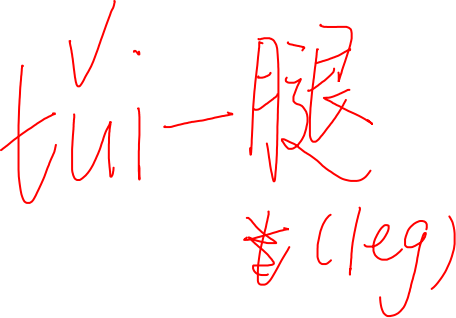 tuǐ - 腿
(leg)